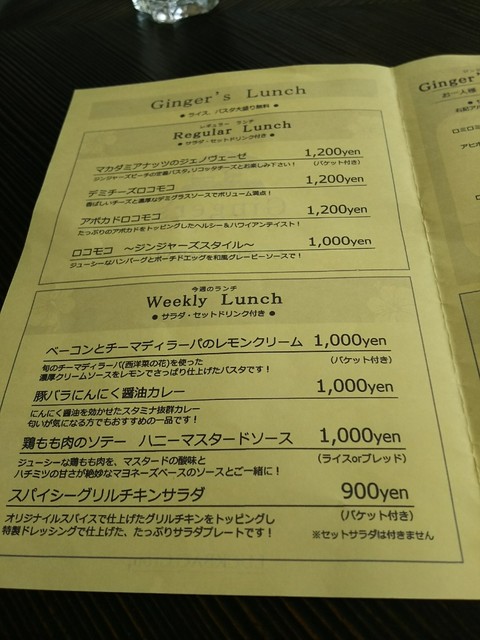 Ginger's Lunch
● ライス、パスタ大盛り無料 ●
レギュラー ランチ
Regular Lunch
● サラダ・セットドリンク付き ●
マカダミアナッツのジェノヴェーゼ 1,200yen
ジンジャーズビーチの定番パスタ。リコッタチーズとお楽しみ下さい！ (バケット付き)
デミチーズロコモコ 1,200yen
香ばしいチーズと濃厚なデミグラスソースでボリューム満点！
アボカドロコモコ 1,200yen
たっぷりのアボカドをトッピングしたヘルシー＆ハワイアンテイスト！
ロコモコ ～ジンジャーズスタイル～ 1,000yen
ジューシーなハンバーグとポーチドエッグを和風グレービーソースで！
今週のランチ
Weekly Lunch
● サラダ・セットドリンク付き ●
ベーコンとチーマディラーパのレモンクリーム 1,000yen
旬のチーマディラーパ(西洋菜の花)を使った (バケット付き)
濃厚クリームソースをレモンでさっぱり仕上げたパスタです！
豚バラにんにく醤油カレー 1,000yen
にんにく醤油を効かせたスタミナ抜群カレー
匂いが気になる方でもおすすめの一品です！
鶏もも肉のソテー ハニーマスタードソース 1,000yen
ジューシーな鶏もも肉を、マスタードの酸味と (ライスorブレッド)
ハチミツの甘さが絶妙なマヨネーズベースのソースとご一緒に！
スパイシーグリルチキンサラダ 900yen
オリジナイルスパイスで仕上げたグリルチキンをトッピングし (バケット付き)
特製ドレッシングで仕上げた、たっぷりサラダプレートです！ ※セットサラダは付きません
Ginger'
お一人様
ロミロミ
アヒポ